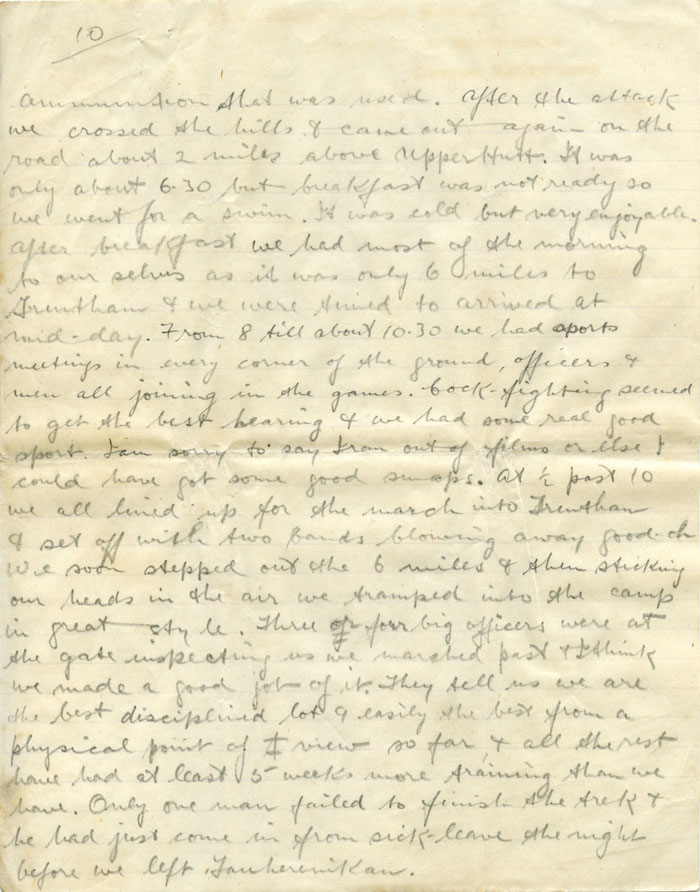 10
ammunition that was used. After the attack
we crossed the hills & came out again on the
road about 2 miles above Upper Hutt. It was
only about 6.30 but breakfast was not ready so
we went for a swim. It was cold but very enjoyable.
After breakfast we had most of the morning
to our selves as it was only 6 miles to
Trentham & we were timed to arrived at
mid-day. From 8 till about 10.30 we had sports
meetings in every corner of the ground, officers &
men all joining in the games. Cock-fighting seemed
to get the best hearing & we had some real good
sport. I am sorry to say I ran out of films or else I
could have got some good snaps. At ½ past 10
we all lined up for the march into Trentham
& set off with two bands blowing away good-oh
We soon stepped out the 6 miles & then sticking
our heads in the air we tramped into the camp
in great style. Three or four big officers were at
the gate inspecting us we marched past & I think
we made a good job of it. They tell us we are
the best disciplined lot & easily the best from a
physical point of view so far, & all the rest
have had at least 5 weeks more training than we
have. Only one man failed to finish the trek &
he had just come in from sick-leave the night
before we left Tauherenikau.